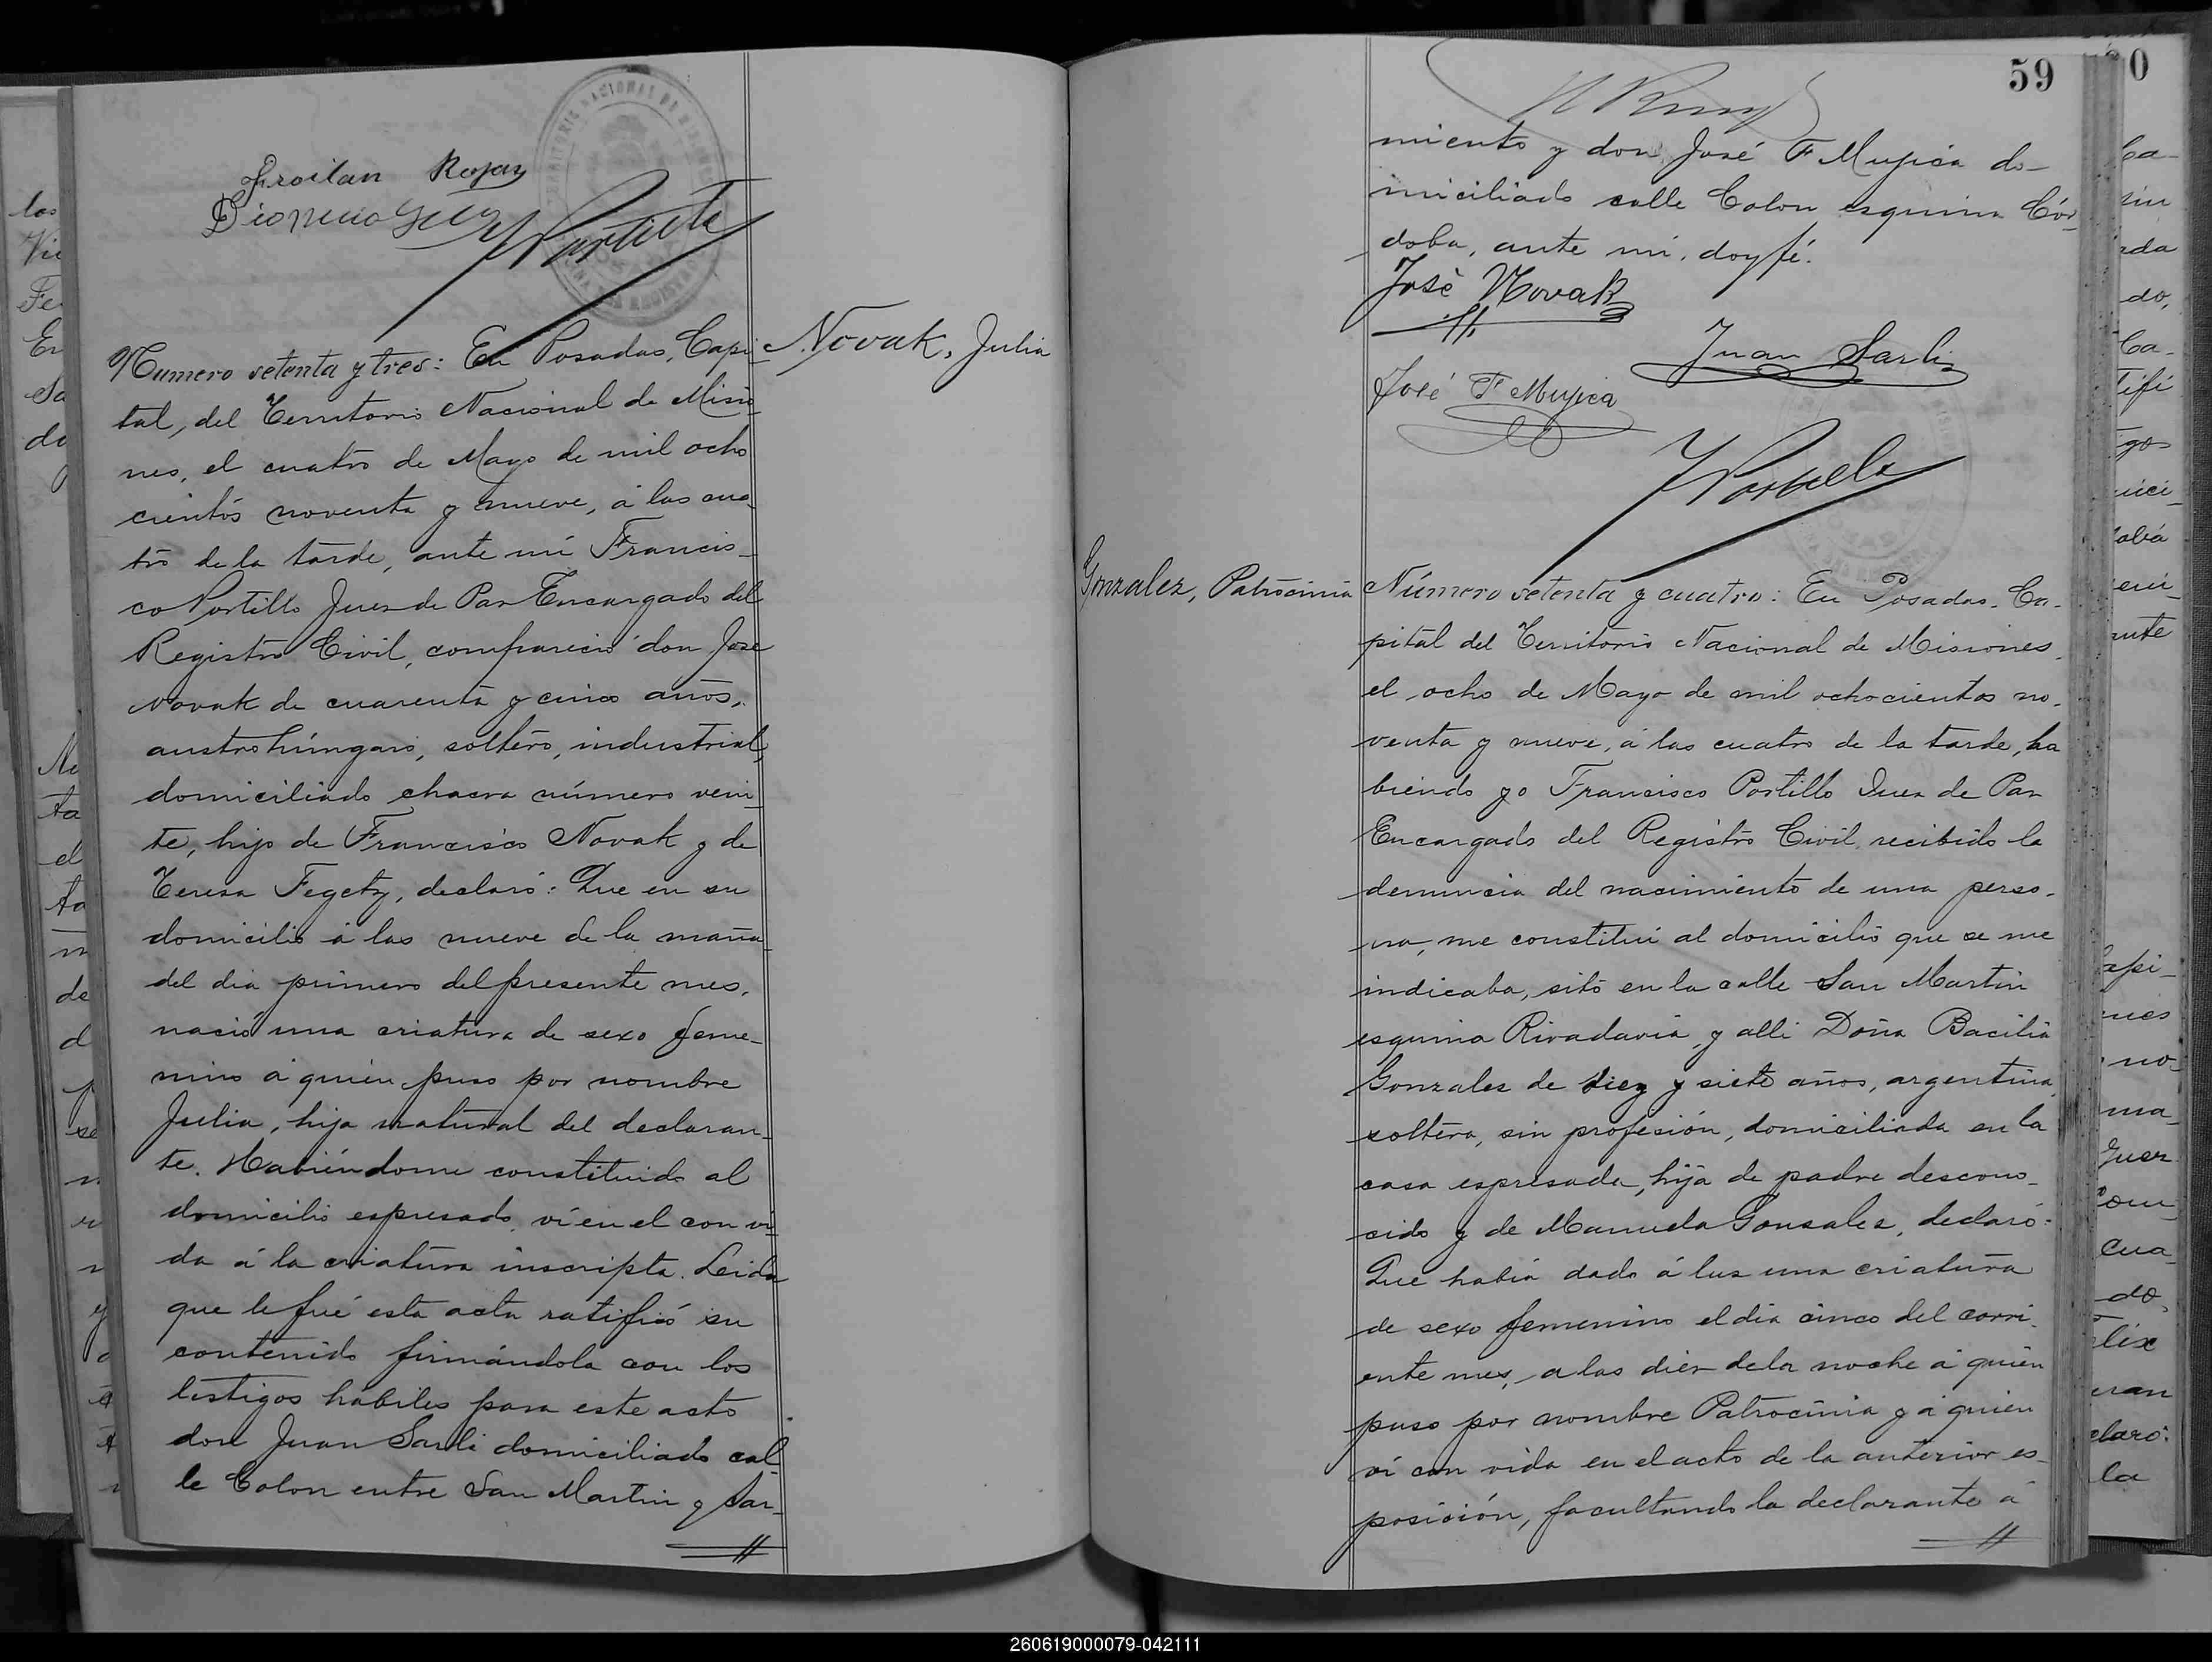 Froilan Rojas
Portillo
Numero setenta y tres: En Posadas, Capi-
tal, del Territorio Nacional de Misio-
nes, el cuatro de Mayo de mil ocho
cientos noventa y nueve, á las cua-
tro de la tarde, ante mí Francis-
co Portillo Juez de Paz Encargado del
Registro Civil, compareció don José
Novak de cuarenta y cinco años,
austro húngaro, soltero, industrial,
domiciliado chacra número vein-
te, hijo de Francisco Novak y de
Teresa Fegety, declaró: Que en su
domicilio á las nueve de la maña-
del dia primero del presente mes,
nació una criatura de sexo feme-
nino á quien puso por nombre
Julia, hija natural del declaran-
te. Habiéndome constituido al
domicilio espresado, ví en el con vi-
da á la criatura inscripta. Leida
que le fué esta acta ratificó su
contenido firmándola con los
testigos hábiles para este acto
don Juan Sarli domiciliado cal-
le Colon entre San Martin y Sar-
Novak, Julia
59
miento y don José F Mujica do-
miciliado calle Colon esquina Cór-
doba, ante mi, doy fé.
José Novak
Juan Sarli
José F Mujica
Portillo
Gonzalez, Patrocinia
Número setenta y cuatro: En Posadas, Ca-
pital del Territorio Nacional de Misiones,
el ocho de Mayo de mil ochocientos no-
venta y nueve, á las cuatro de la tarde, ha
biendo yo Francisco Portillo Juez de Paz
Encargado del Registro Civil, recibido la
denuncia del nacimiento de una perso-
na, me constituí al domicilio que se me
indicaba, sito en la calle San Martin
esquina Rivadavia, y alli Doña Bacilia
Gonzales de diez y siete años, argentina,
soltera, sin profesión, domiciliada en la
casa espresada, hija de padre descono-
cido y de Manuela Gonsales, declaró:
Que habia dado á luz una criatura
de sexo femenino el dia cinco del corri-
ente mes, a las diez de la noche á quien
puso por nombre Patrocinia y á quien
ví con vida en el acto de la anterior es-
posición, facultando la declarante á
260619000079-042111